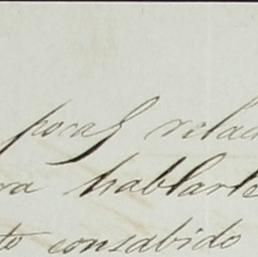 pocas relac
ra hablarte
to consabido